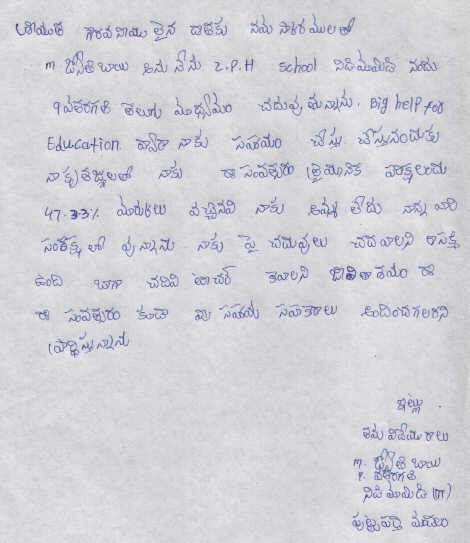 శ్రీయుత గౌరవనీయులైన దాతకు నమస్కారములతో
m జ్యోతి బాయి అను నేను Z.P.H School నిడిమామిడి నందు
9వతరగతి తెలుగు మాధ్యమం చదువుతున్నాను. Big help for
Education ద్వారా నాకు సహాయం చేస్తూ చేస్తునందుకు
నా కృతజ్ఞులతో నాకు ఈ సంవత్సరం త్రైమాసిక పరీక్షలందు
47.33% మార్కులు వచ్చినవి నాకు అమ్మ లేదు నాన్న వారి
సంరక్షణలో వున్నాను. నాకు పై చదువులు చదవాలని ఆసక్తి
ఉంది బాగా చదివి టీచర్ కావాలని జీవితాశయం ఈ
ఈ సంవత్సరం కూడా మా సహాయ సహకారాలు అందించగలరని
ప్రార్థిస్తున్నాను
ఇట్లు
తమ విధేయురాలు
m. జ్యోతి బాయి
9. వతరగతి
నిడిమామిడి
పుట్టపర్తి మండలం